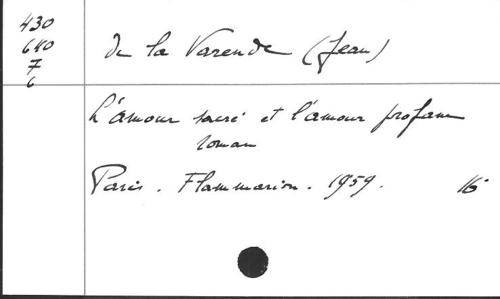 430
640
7
6
de la Varende (Jean)
L'amour sacré et l'amour profane
roman
Paris. Flammarion. 1959. 16°